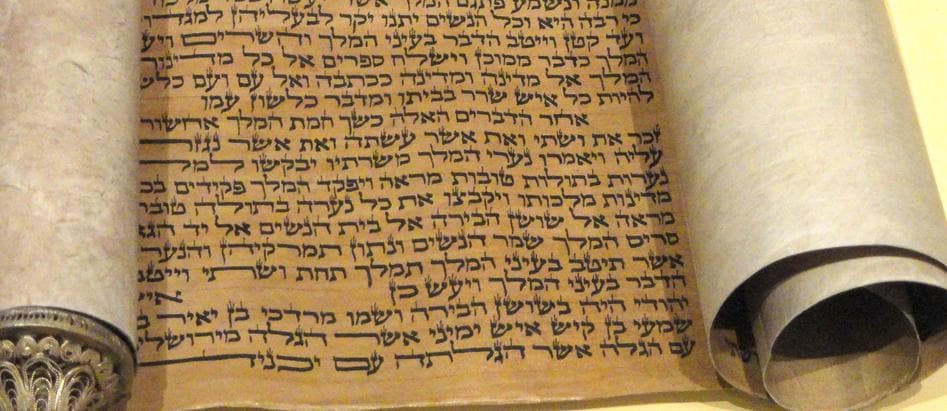 ונשמע פתגם המלך אשר
כי רבה היא וכל הנשים יתנו יקר לבעליהן למגדו
ועד קטן וייטב הדבר בעיני המלך והשרים ויע
המלך כדבר ממוכן וישלח ספרים אל כל מדינו
המלך אל מדינה ומדינה ככתבה ואל עם ועם כלש
להיות כל איש שרר בביתו ומדבר כלשון עמו
אחר הדברים האלה כשך חמת המלך אחשור
זכר את ושתי ואת אשר עשתה ואת אשר נגזר
עליה ויאמרו נערי המלך משרתיו יבקשו למל
נערות בתולות טובות מראה ויפקד המלך פקידים בכ
מדינות מלכותו ויקבצו את כל נערה בתולה טובת
מראה אל שושן הבירה אל בית הנשים אל יד הגא
סריס המלך שמר הנשים ונתון תמרקיהן והנער
אשר תיטב בעיני המלך תמלך תחת ושתי וייטב
הדבר בעיני המלך ויעש כן אי
יהודי היה בשושן הבירה ושמו מרדכי בן יאיר ב
שמעי בן קיש איש ימיני אשר הגלה מירושלי
עם הגלה אשר הגלתה עם יכניה